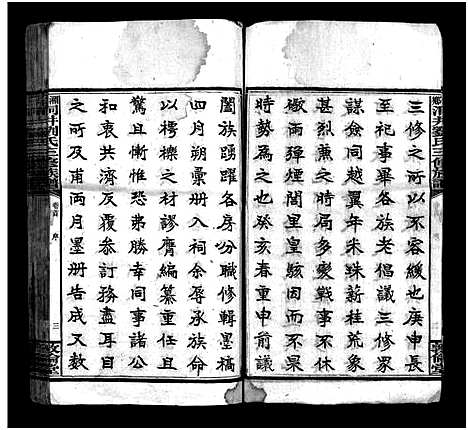 三修之所以不容緩也庚申長
至祀事畢各族老倡議三修眾
謀僉同越翼年米珠薪桂荒象
烈熏之時局多變戰事不休
礮雨彈煙閭里皇駭因而不果
時勢為之也癸亥春重申前議
闔族踴躍各房分職修輯墨稿
四月朔彙册入祠余辱承族命
以樗櫟之材謬膺編纂重任且
驚且慚惟恐弗勝幸同事諸公
和衷共濟反覆參訂務盡耳目
之所及甫兩月墨册告成又數
洞井劉氏三修族譜
卷首
序
三
敦倫堂